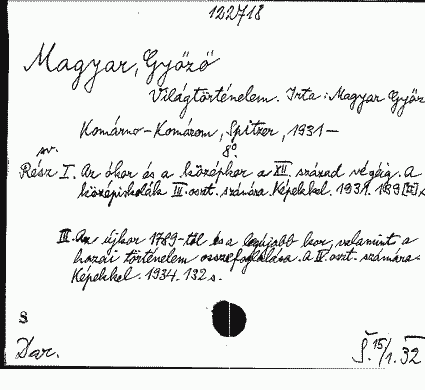 122718
Magyar, Győző
Világtörténelem. Irta: Magyar Győz
Komárno-Komárom, Spitzer, 1931-
sv. 8°
Rész I. Az ókor és a középkor a XII. század végéig. A
középiskolák III. oszt. számára. Képekkel. 1931. 189
III. Az újkor 1789-től és a legújabb kor, valamint a
hazai történelem összefoglalása. A IV. oszt. számára.
Képekkel. 1934. 132 s.
8
Dar. Š. 15/1. 32